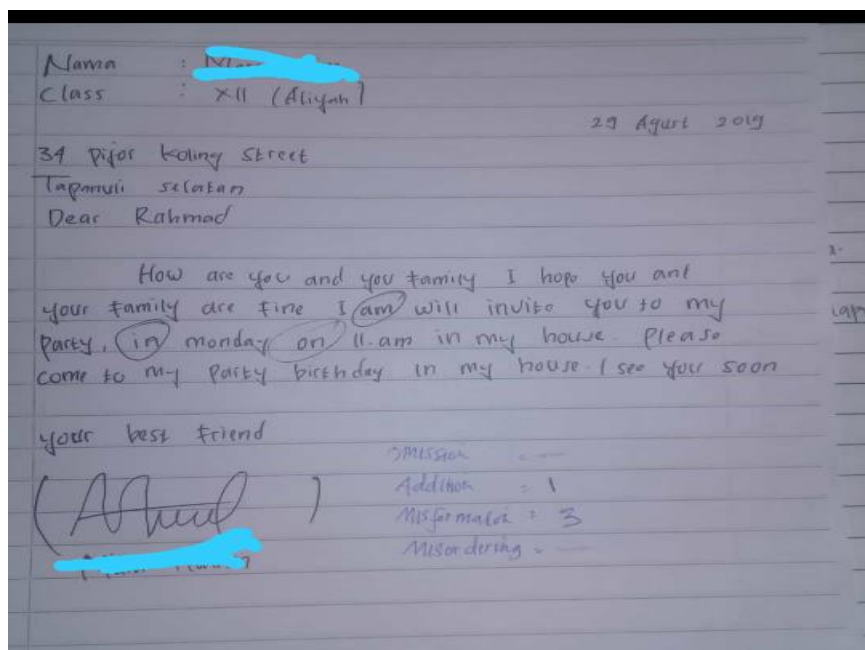 Nama :
Class : XII (Aliyah)
29 Agust 2019
34 Pijor Koling Street
Tapanuli selatan
Dear Rahmad
How are you and you family I hope you ant
your family are fine I am will invite you to my
party, in monday on 11.am in my house. Please
come to my Party birthday in my house. I see your soon
your best friend
omission : —
Addition = 1
Misformation = 3
Misordering = —